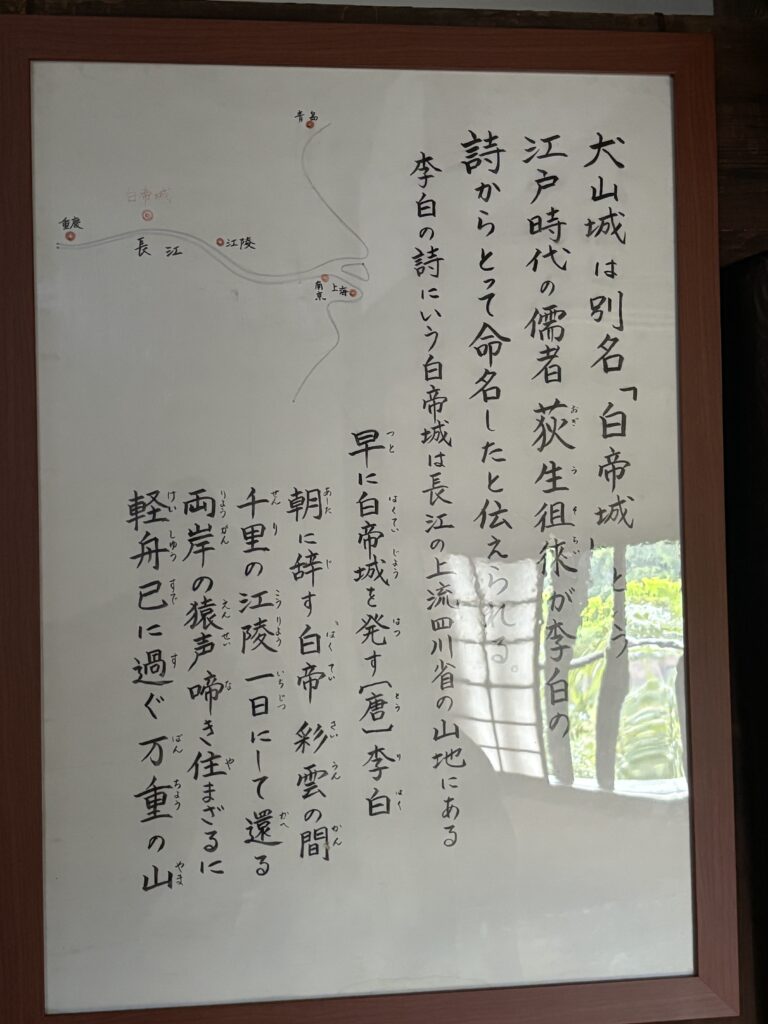 犬山城は別名「白帝城」という
江戸時代の儒者 荻生徂徠が李白の
詩からとって命名したと伝えられる。
李白の詩にいう白帝城は長江の上流四川省の山地にある
早に白帝城を発す［唐］李白
朝に辞す白帝 彩雲の間
千里の江陵 一日にして還る
両岸の猿声 啼き住まざるに
軽舟已に過ぐ 万重の山
青島
白帝城
重慶
長江
江陵
南京
上海